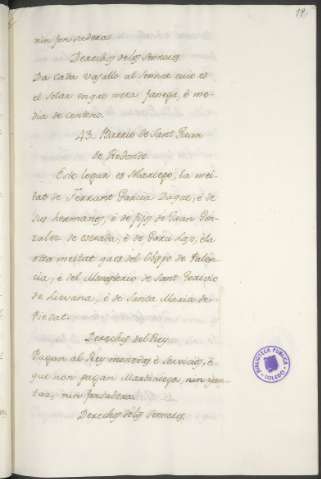 12
nin fonsadera.
Derechos de los Señores
Da cada vasallo al Señor cuio es
el solar en que mora fanega, é me-
dia de centeno.
43. Barrio de Sant Juan
de Redondo
Este logar es Abadengo, la mei-
tat de Ferrant Garcia Duque, é de
sus hermanos, é de fijos de Juan Gon-
zalez de
é de Garci
é la
otra meitat que es del Obispo de Palen-
cia, é del Monesterio de Sant
de Lievana, é de Santa Maria de
Piedat.
Derechos del Rey
Pagan al Rey monedas é servicios, é
que non pagan Martiniega, nin yan-
tar, nin fonsadera.
Derechos de los Señores
BIBLIOTECA PÚBLICA
TOLEDO